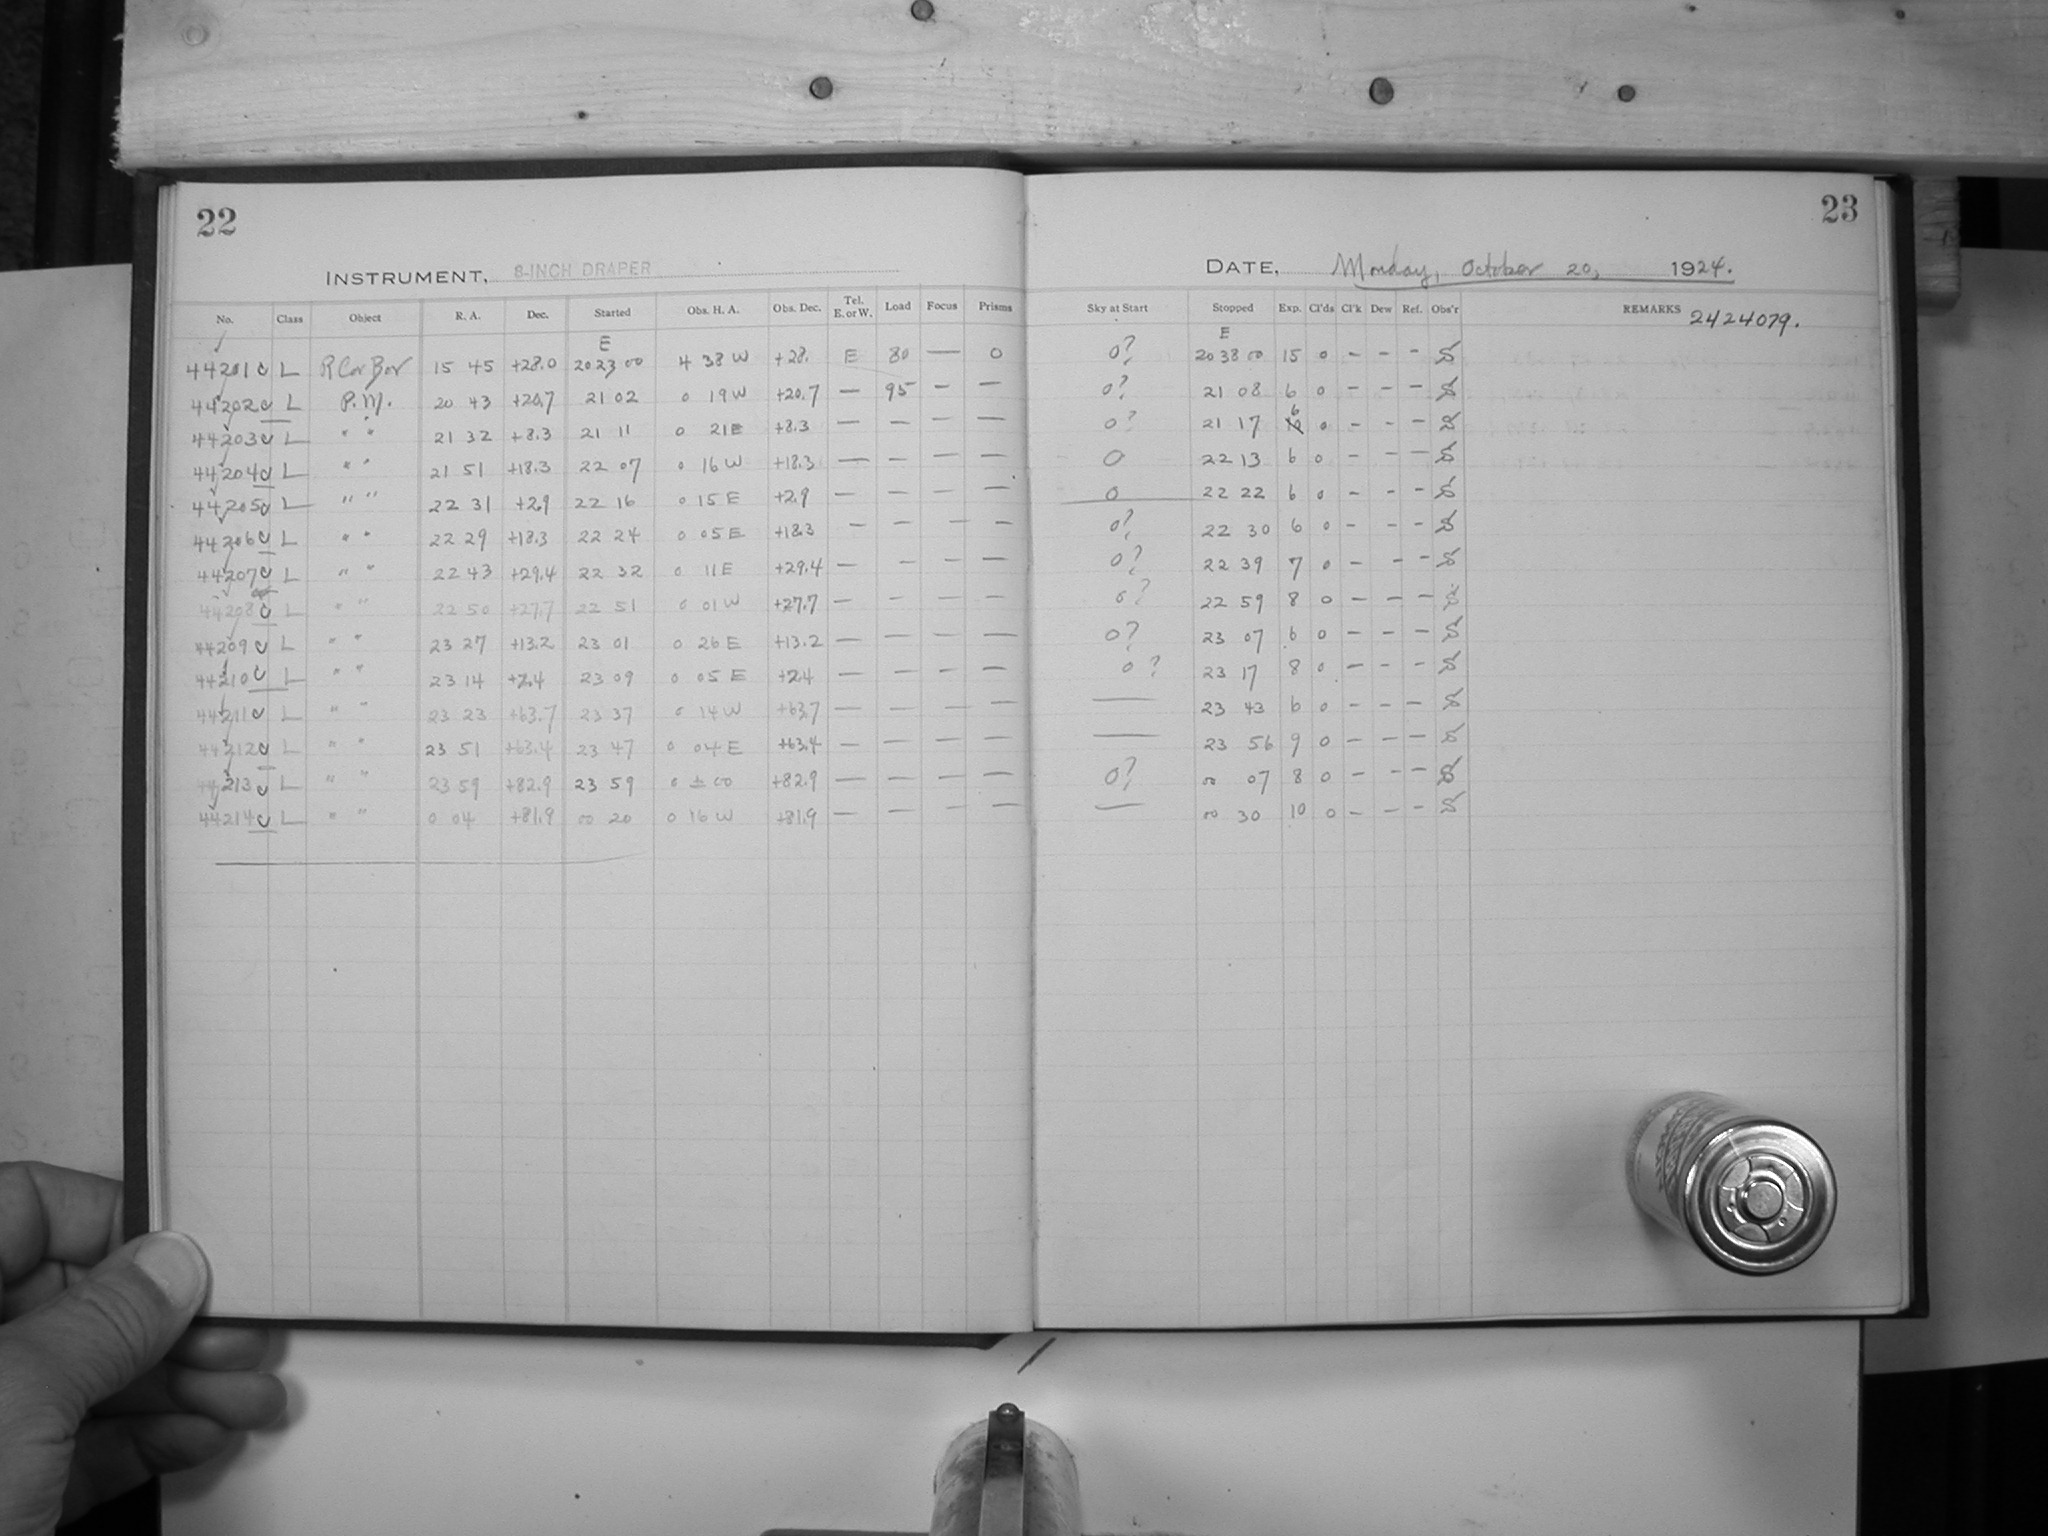 22
INSTRUMENT, 8-INCH DRAPER
No. Class Object R. A. Dec. Started Obs. H. A. Obs. Dec. Tel. E. or W. Load Focus Prisms
E
44201 L R Cor Bor 15 45 +28.0 20 23 00 4 38 W +28. E 80 — 0
44202 L P. M. 20 43 +20.7 21 02 0 19 W +20.7 — 95 — —
44203 L " " 21 32 +8.3 21 11 0 21 E +8.3 — — — —
44204 L " " 21 51 +18.3 22 07 0 16 W +18.3 — — — —
44205 L " " 22 31 +2.9 22 16 0 15 E +2.9 — — — —
44206 L " " 22 29 +18.3 22 24 0 05 E +18.3 — — — —
44207 L " " 22 43 +29.4 22 32 0 11 E +29.4 — — — —
44208 L " " 22 50 +27.7 22 51 0 01 W +27.7 — — — —
44209 L " " 23 27 +13.2 23 01 0 26 E +13.2 — — — —
44210 L " " 23 14 +2.4 23 09 0 05 E +2.4 — — — —
44211 L " " 23 23 +63.7 23 37 0 14 W +63.7 — — — —
44212 L " " 23 51 +63.4 23 47 0 04 E +63.4 — — — —
44213 L " " 23 59 +82.9 23 59 0 ± 00 +82.9 — — — —
44214 L " " 0 04 +81.9 00 20 0 16 W +81.9 — — — —
23
DATE, Monday, October 20, 1924.
Sky at Start Stopped Exp. Cl'ds Cl'k Dew Ref. Obs'r REMARKS 2424079.
E
0? 20 38 00 15 0 – – –
0? 21 08 6 0 – – –
0? 21 17 6 0 – – –
0 22 13 6 0 – – –
0 22 22 6 0 – – –
0? 22 30 6 0 – – –
0? 22 39 7 0 – – –
0? 22 59 8 0 – – –
0? 23 07 6 0 – – –
0? 23 17 8 0 – – –
— 23 43 6 0 – – –
— 23 56 9 0 – – –
0? 00 07 8 0 – – –
— 00 30 10 0 – – –